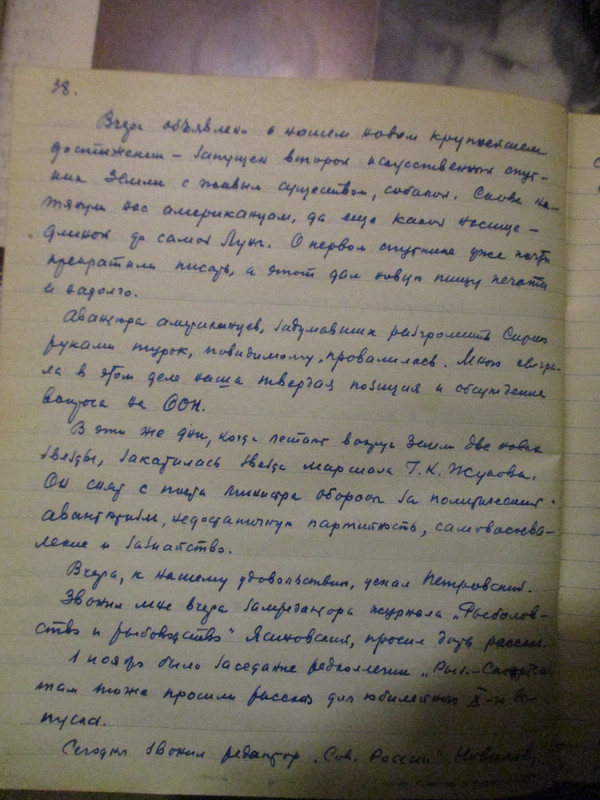 38.
Вчера объявлено о нашем новом крупнейшем
достижении – запущен второй искусственный спут-
ник Земли с живым существом, собакой. Снова на-
тянули нос американцам, да еще какой носище –
длиной до самой Луны. О первом спутнике уже почти
прекратили писать, а этот дал новую пищу печати
и надолго.
Авантюра американцев, задумавших разгромить Сирию
руками турок, повидимому, провалилась. Много сыгра-
ла в этом деле наша твердая позиция и обсуждение
вопроса на ООН.
В эти же дни, когда летают вокруг Земли две новых
звезды, закатилась звезда маршала Г. К. Жукова.
Он снят с поста министра обороны за политический
авантюризм, недостаточную партийность, самовосхва-
ление и зазнайство.
Вчера, к нашему удовольствию, уехал Петровский.
Звонил мне вчера замредактора журнала „Рыболов-
ство и рыбоводство" Ясиновский, просил дать рассказ.
1 ноября было заседание редколлегии „Рыб.-Спортсм
там тоже просили рассказ для юбилейного X-го вы-
пуска.
Сегодня звонил редактор „Сов. России"